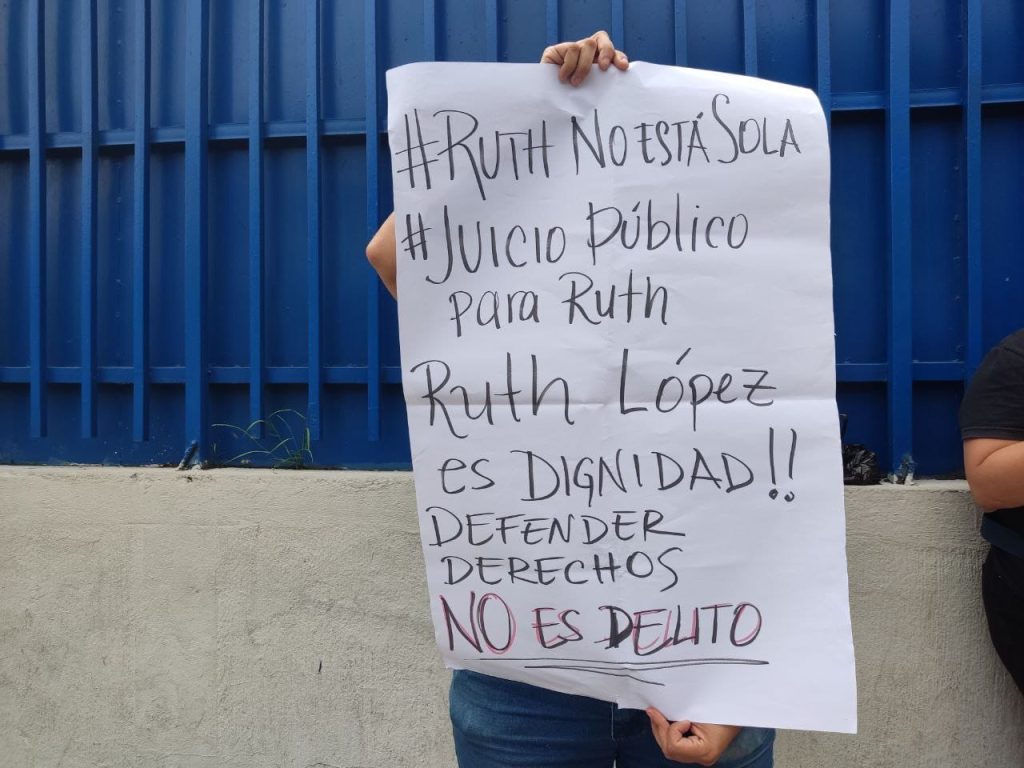 #RUTH NO ESTÁ SOLA
#JUICIO Público
para Ruth
Ruth López
es DIGNIDAD!!
DEFENDER
DERECHOS
NO ES DELITO